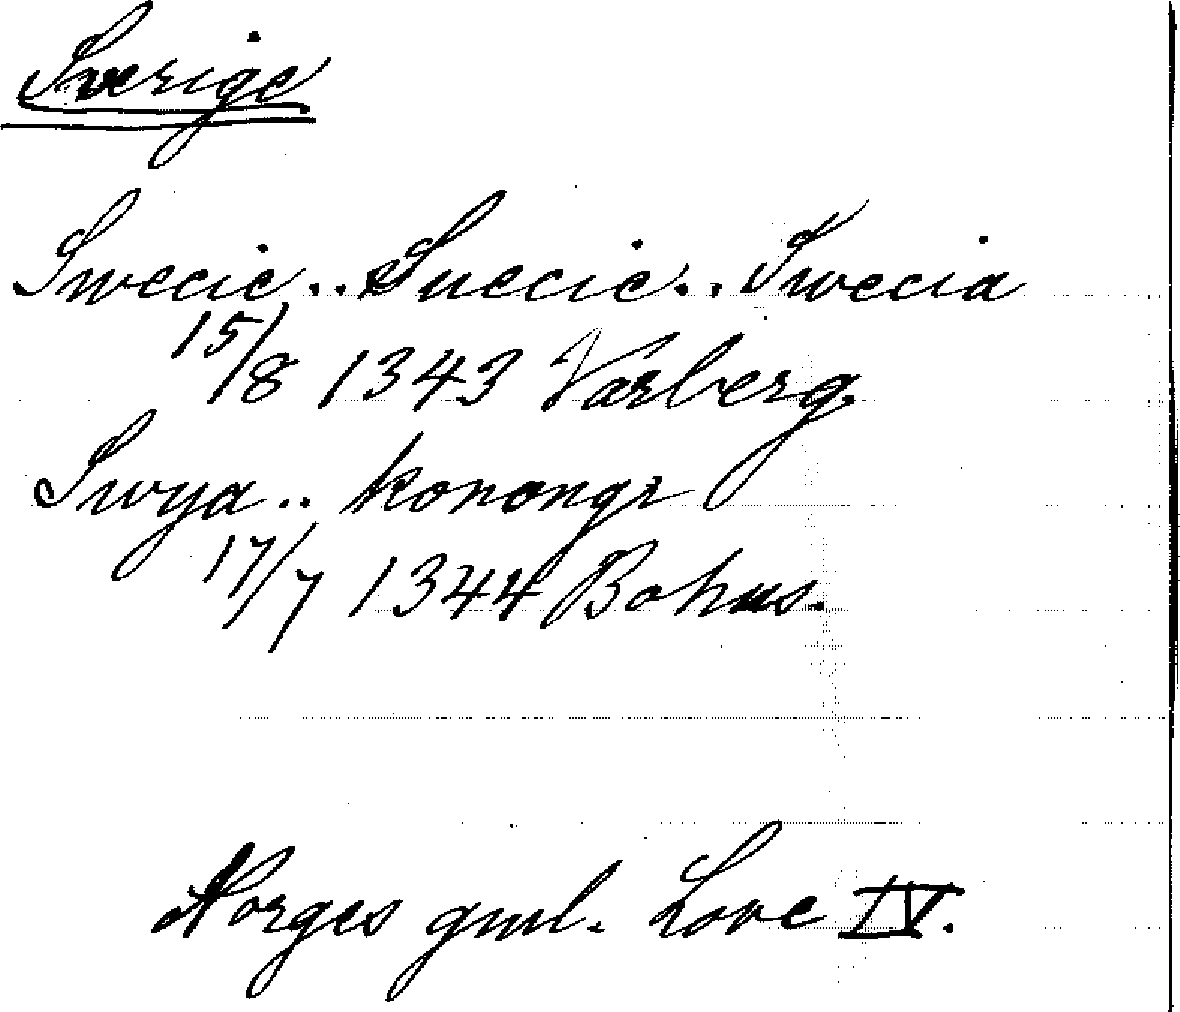 Sverige
Swecie.. Suecie.. Swecia
15/8 1343 Varberg.
Swya.. konongr
17/7 1344 Bohus.
Norges gml. Love IV.